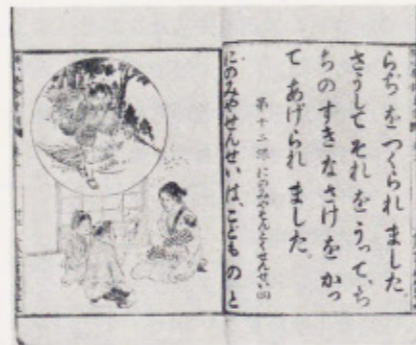 らぢをつくられました。
さうしてそれをうって、ち
ちのすきなさけをかっ
てあげられました。
第十二課 にのみやそんとくせんせい
にのみやせんせいは、こどものと